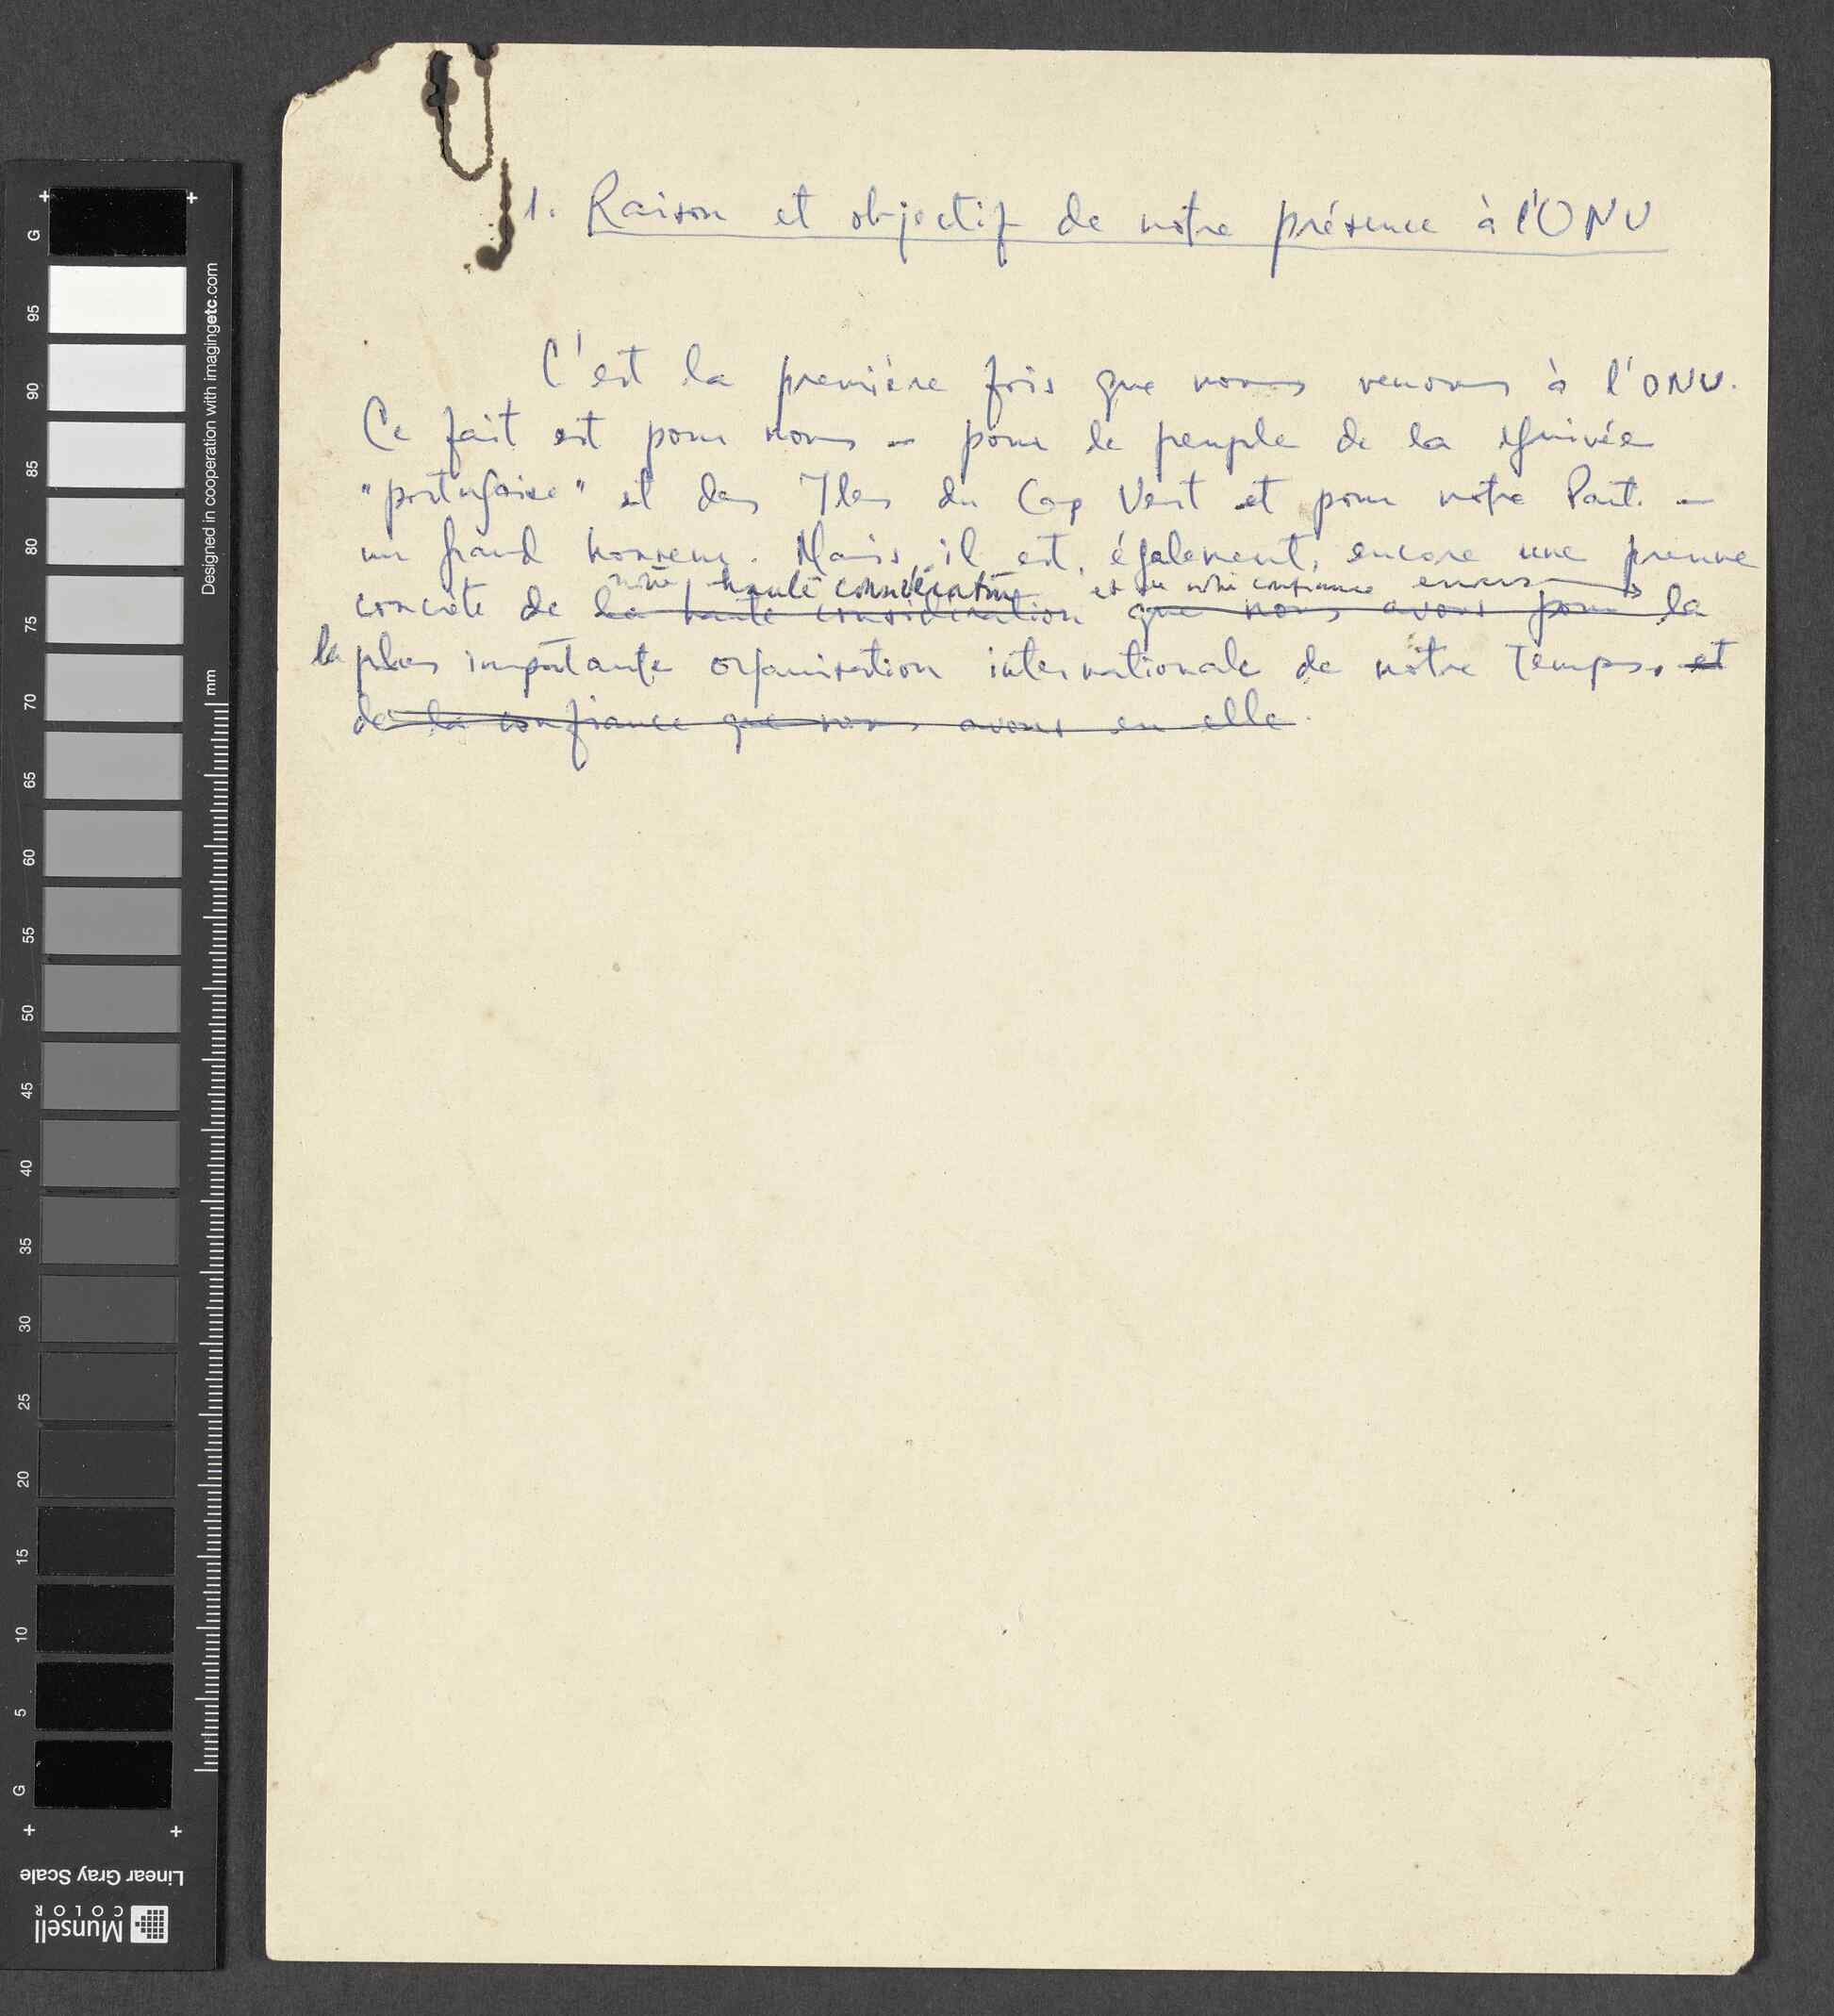 1. Raison et objectif de notre présence à l'ONU
C'est la première fois que nous venons à l'ONU.
Ce fait est pour nous - pour le peuple de la Guinée
"portugaise" et des Iles du Cap Vert et pour notre Part. -
un grand honneur. Mais, il est, également, encore une preuve
notre haute considération et de notre confiance envers
concrète de la haute considération que nous avons pour la
la plus importante organisation internationale de notre temps, et
de la confiance que nous avons en elle.
G
95
90
85
80
75
70
65
60
55
50
45
40
35
30
25
20
15
10
5
G
Designed in cooperation with imagingetc.com
mm
Linear Gray Scale
Munsell
COLOR